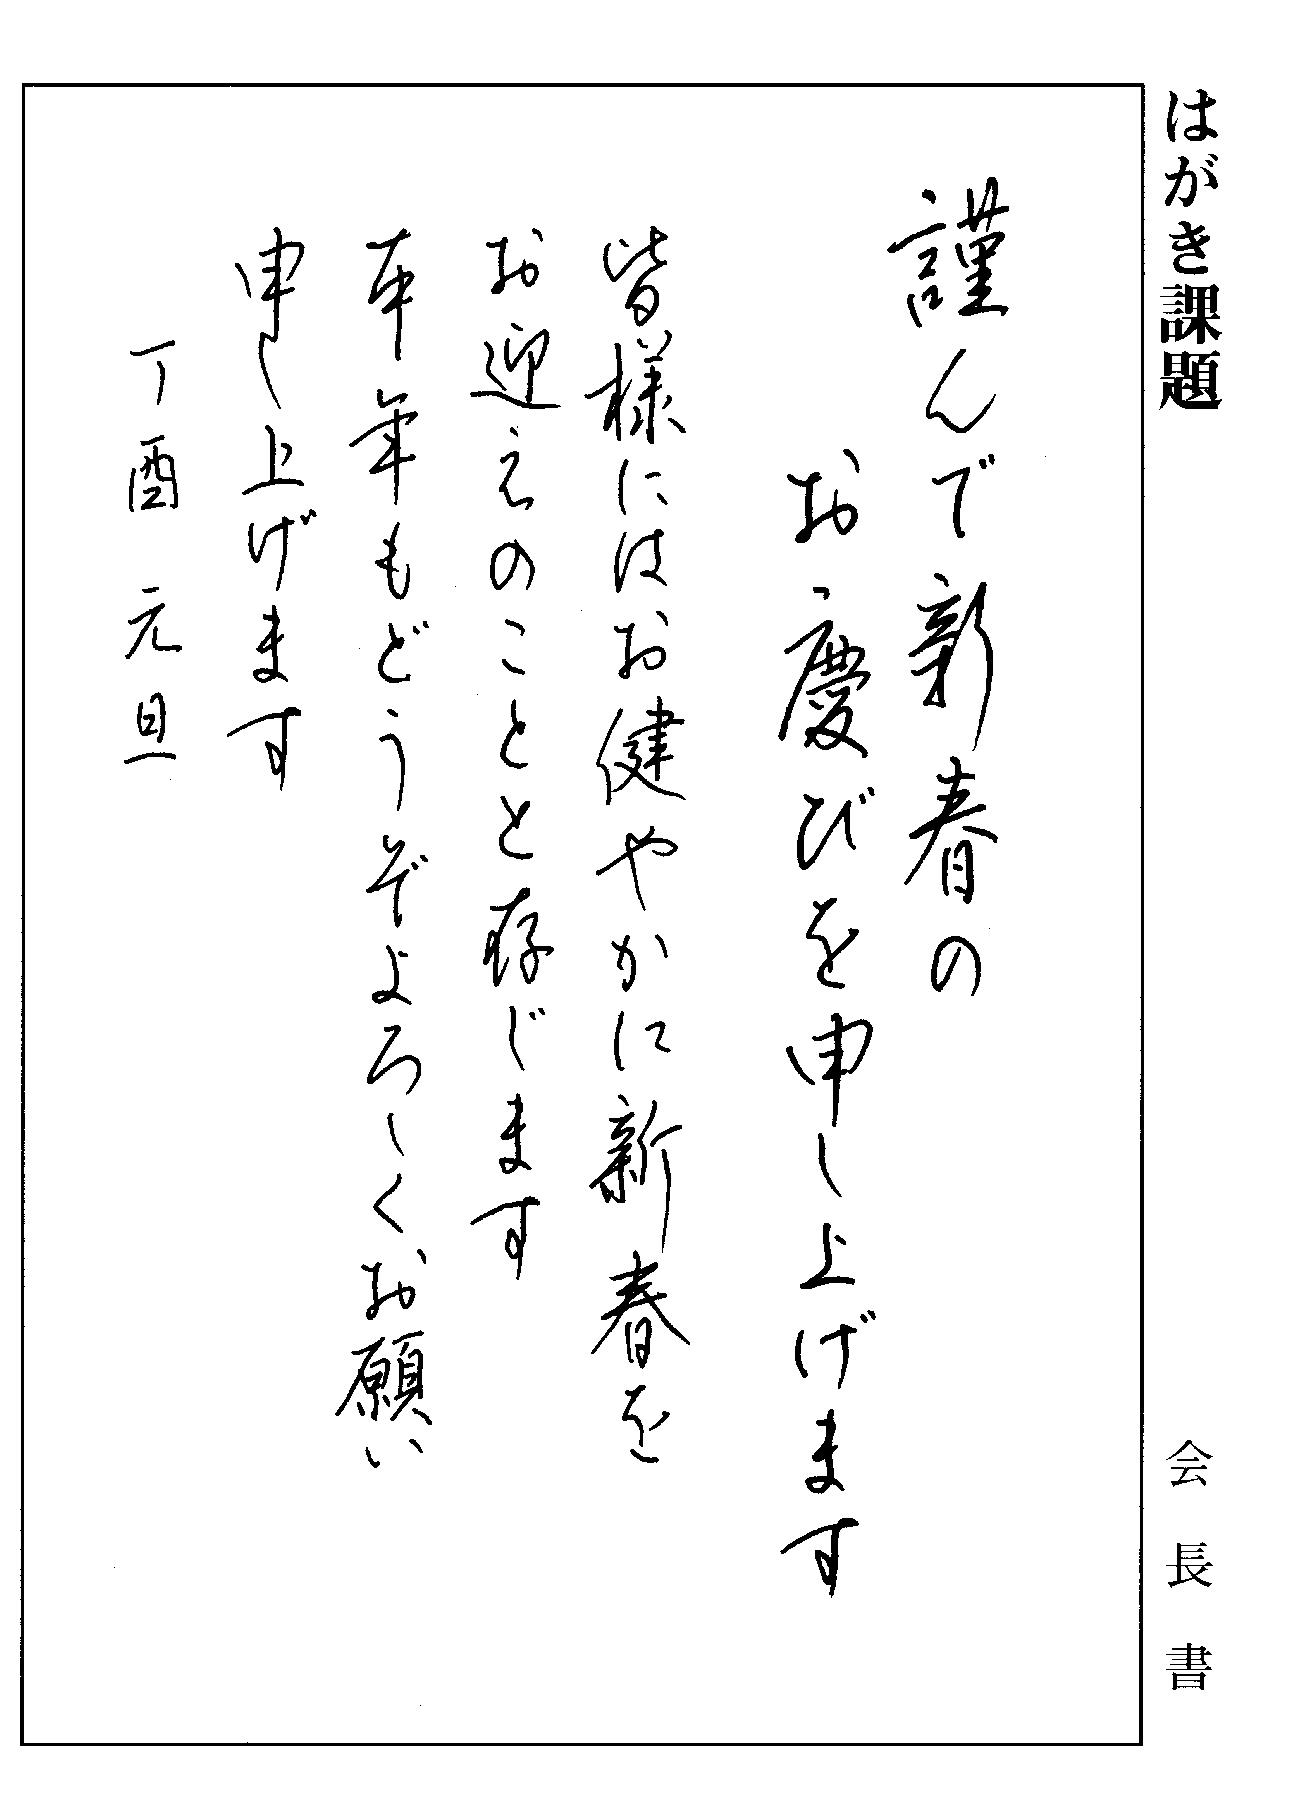 はがき課題
会長書
謹んで新春の
お慶びを申し上げます
皆様にはお健やかに新春を
お迎えのことと存じます
本年もどうぞよろしくお願い
申し上げます
丁酉 元旦